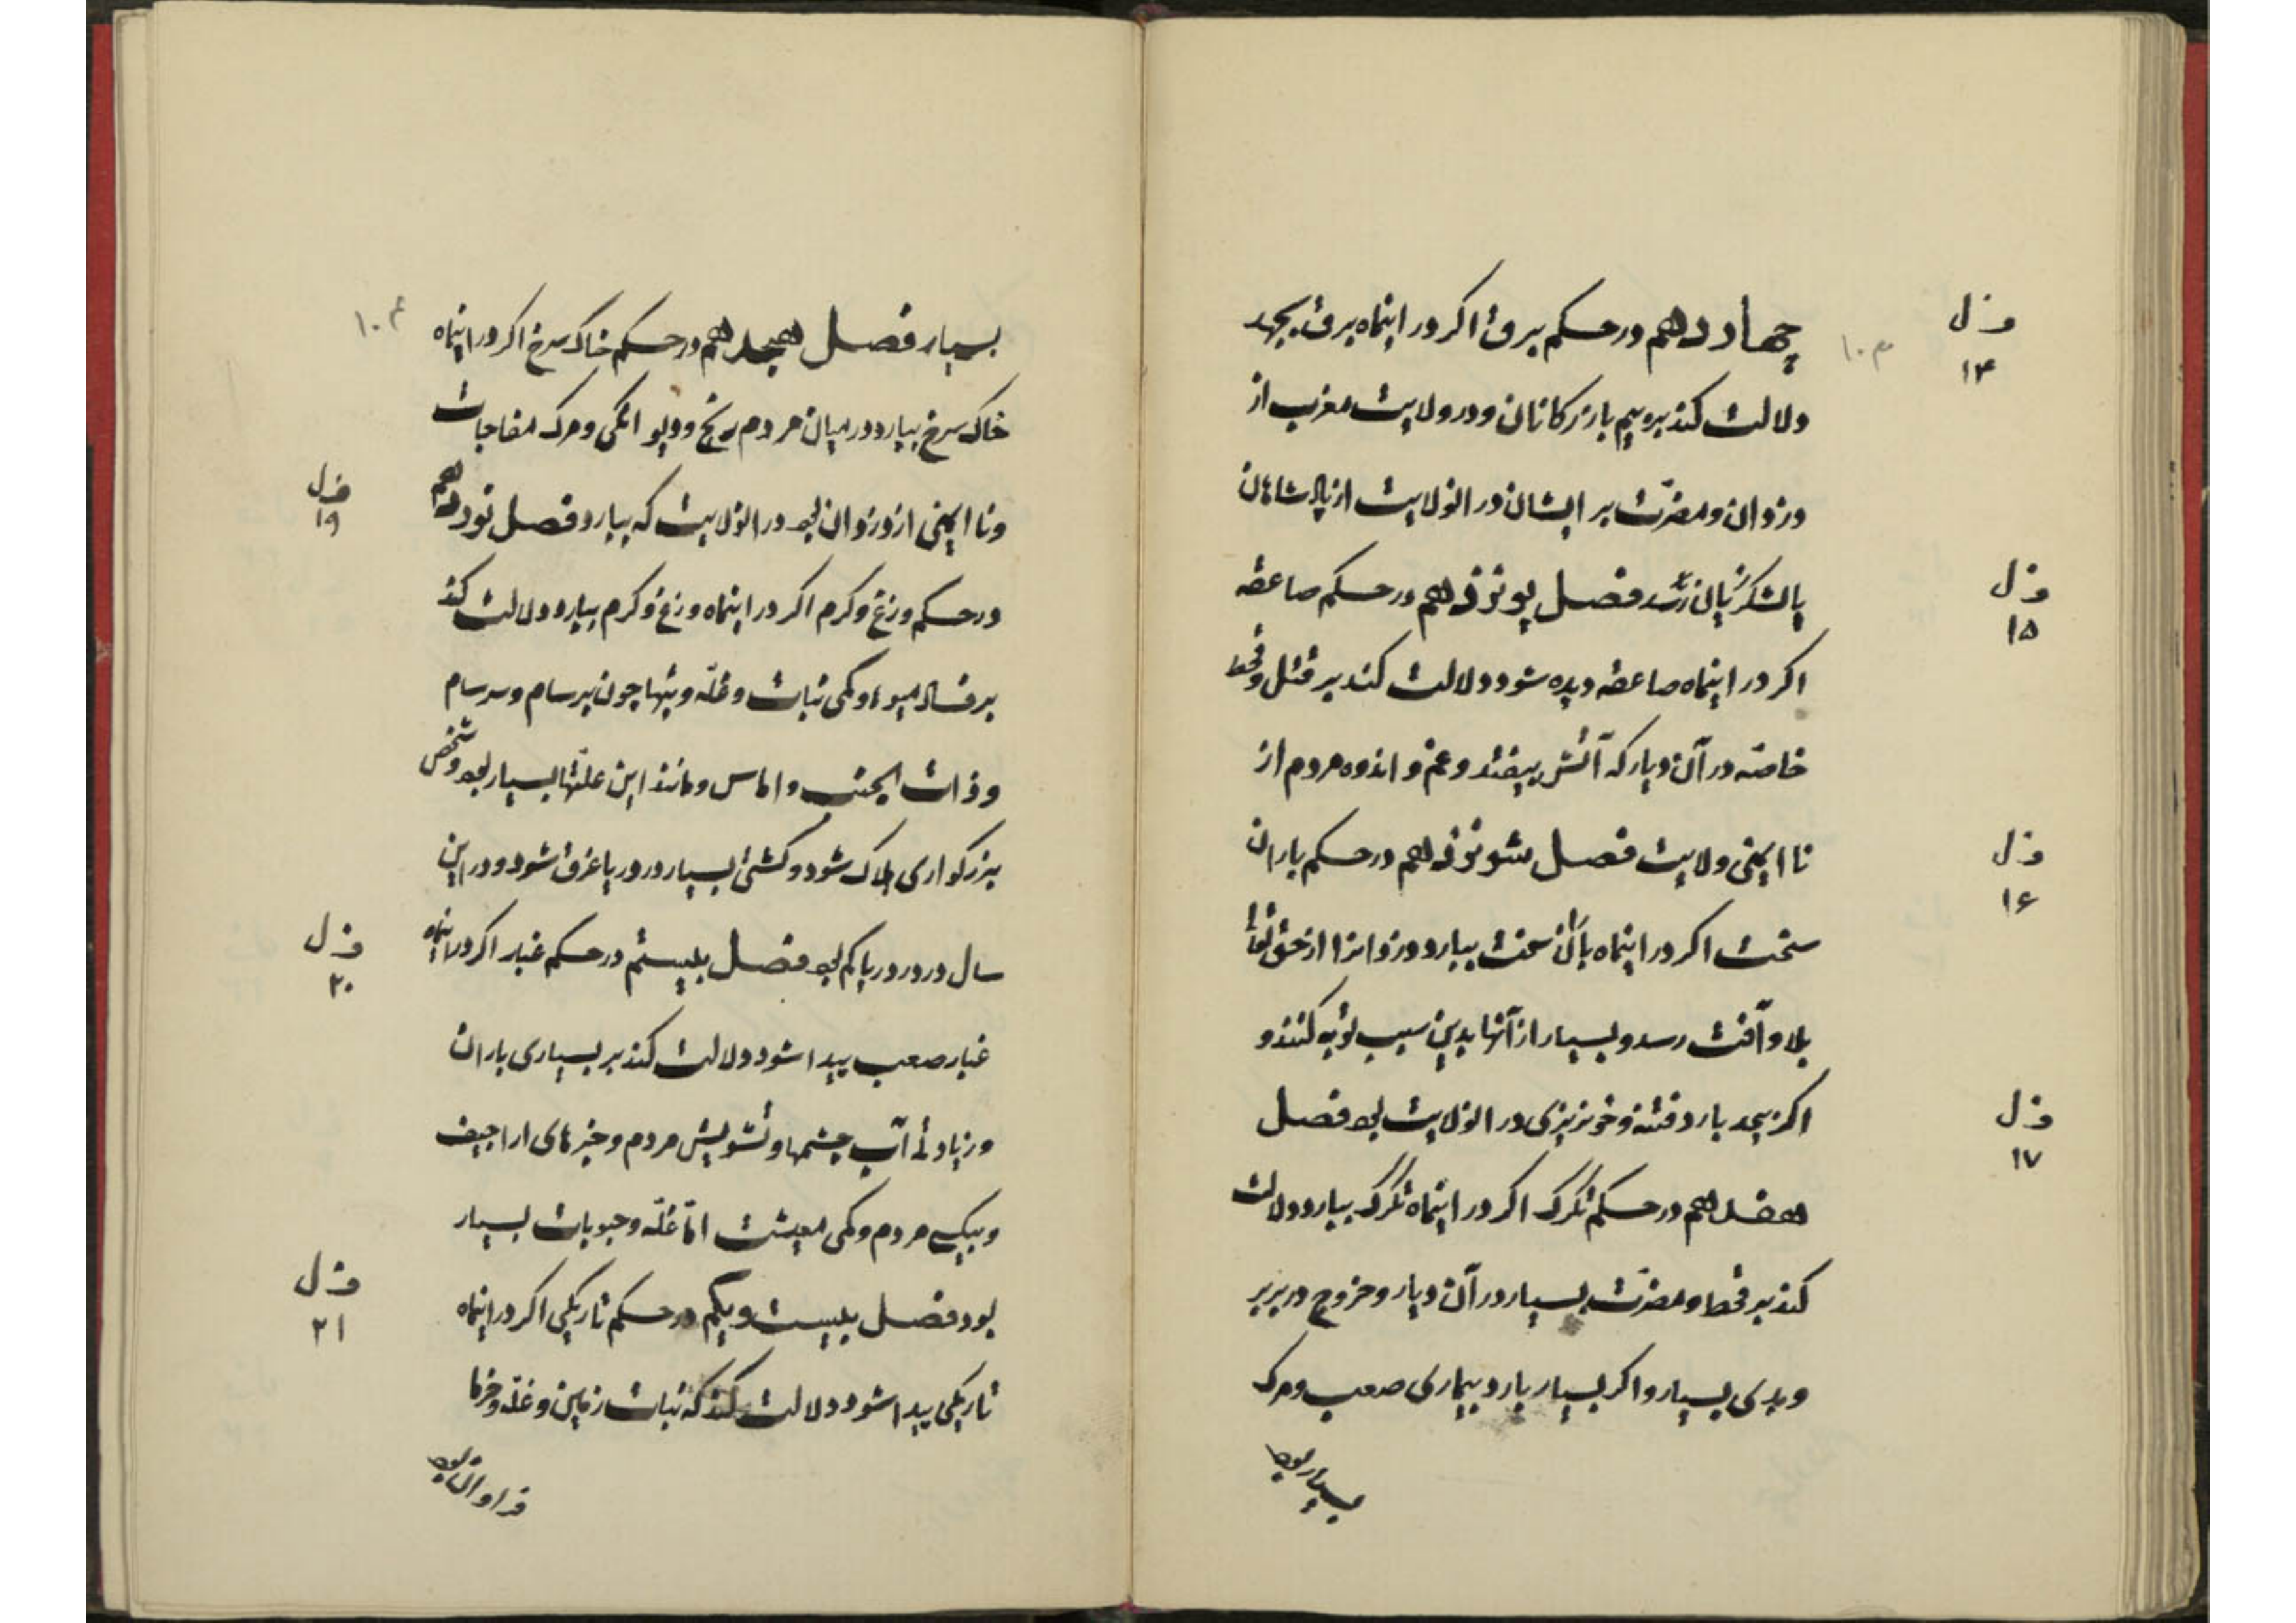 چهاردهم در حکم برق اگر در اینماه برق بجهد
ف‍ ل
۱۴
۱۰۳
دلالت کند بر بیم بازرکانان و در ولایت مغرب از
دزدان و مضرّت بر ایشان در انولایت از پادشاهان
یا لشکر زیان رسد فصل پونزدهم در حکم صاعقه
ف‍ ل
۱۵
اکر در اینماه صاعقه دیده شود دلالت کند بر قتل و قحط
خاصّه در آن دیار که آتش بیفتد و غم و اندوه مردم از
نا ایمنی ولایت فصل شونزدهم در حکم باران
ف‍ ل
۱۶
سخت اکر در اینماه باران سخت ببارد دزدانرا از حق تعالی
بلا و آفت رسد و بسیار از آنها بدین سبب توبه کنند و
اکر بیحد بارد فتنه و خونریزی در انولایت بود فصل
ف‍ ل
۱۷
هفدهم در حکم تگرک اکر در اینماه تگرک ببارد دلالت
کند بر قحط و مضرّت بسیار در آن دیار و خروج در بربر
و بدی بسیار و اکر بسیار بارد بیماری صعب و مرک
بسیار بود
بسیار فصل هیجدهم در حکم خاک سرخ اکر در اینماه
۱۰۴
خاک سرخ ببارد در میان مردم رنج و دیوانکی و مرک مفاجات
و نا ایمنی از دزدان بود در انولایت که ببارد فصل نوزدهم
ف‍ ل
۱۹
در حکم وزغ و کرم اکر در اینماه وزغ و کرم ببارد دلالت کند
بر فساد میوه و کمی نبات و غلّه و تبها چون برسام و سرسام
و ذات الجنب و اماس و مانند این علّتها بسیار بود و شخص
بزرکواری هلاک شود و کشتی بسیار در دریا غرق شود و در این
سال درّ در دریا کم بود فصل بیستم در حکم غبار اکر در اینماه
ف‍ ل
۲۰
غبار صعب پیدا شود دلالت کند بر بسیاری باران
و زیادتی آب چشمها و تشویش مردم و خبرهای اراجیف
و مردم و کمی معیشت امّا غلّه و حبوبات بسیار
بود فصل بیست و یکم در حکم تاریکی اکر در اینماه
ف‍ ل
۲۱
تاریکی پیدا شود دلالت کند که نبات زمین و غلّه و خرما
فراوان بود